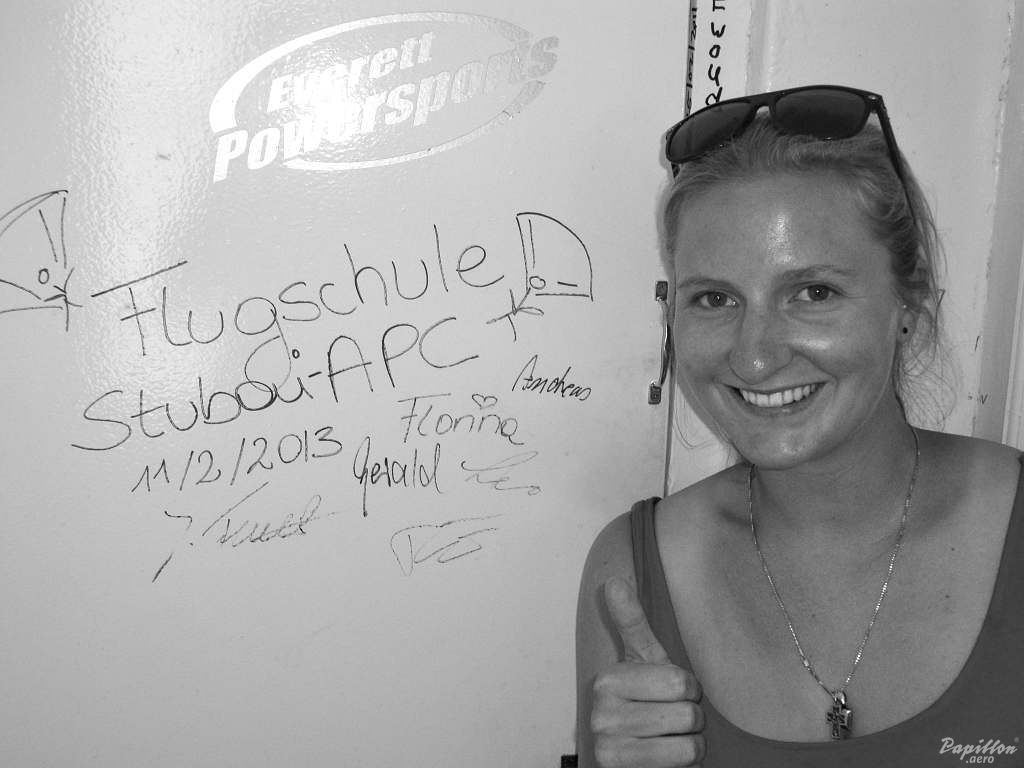 Everett
Powersports
Flugschule
Stubai-APC
11/2/2013
Andreas
Florina
Gerald
Papillon
.aero